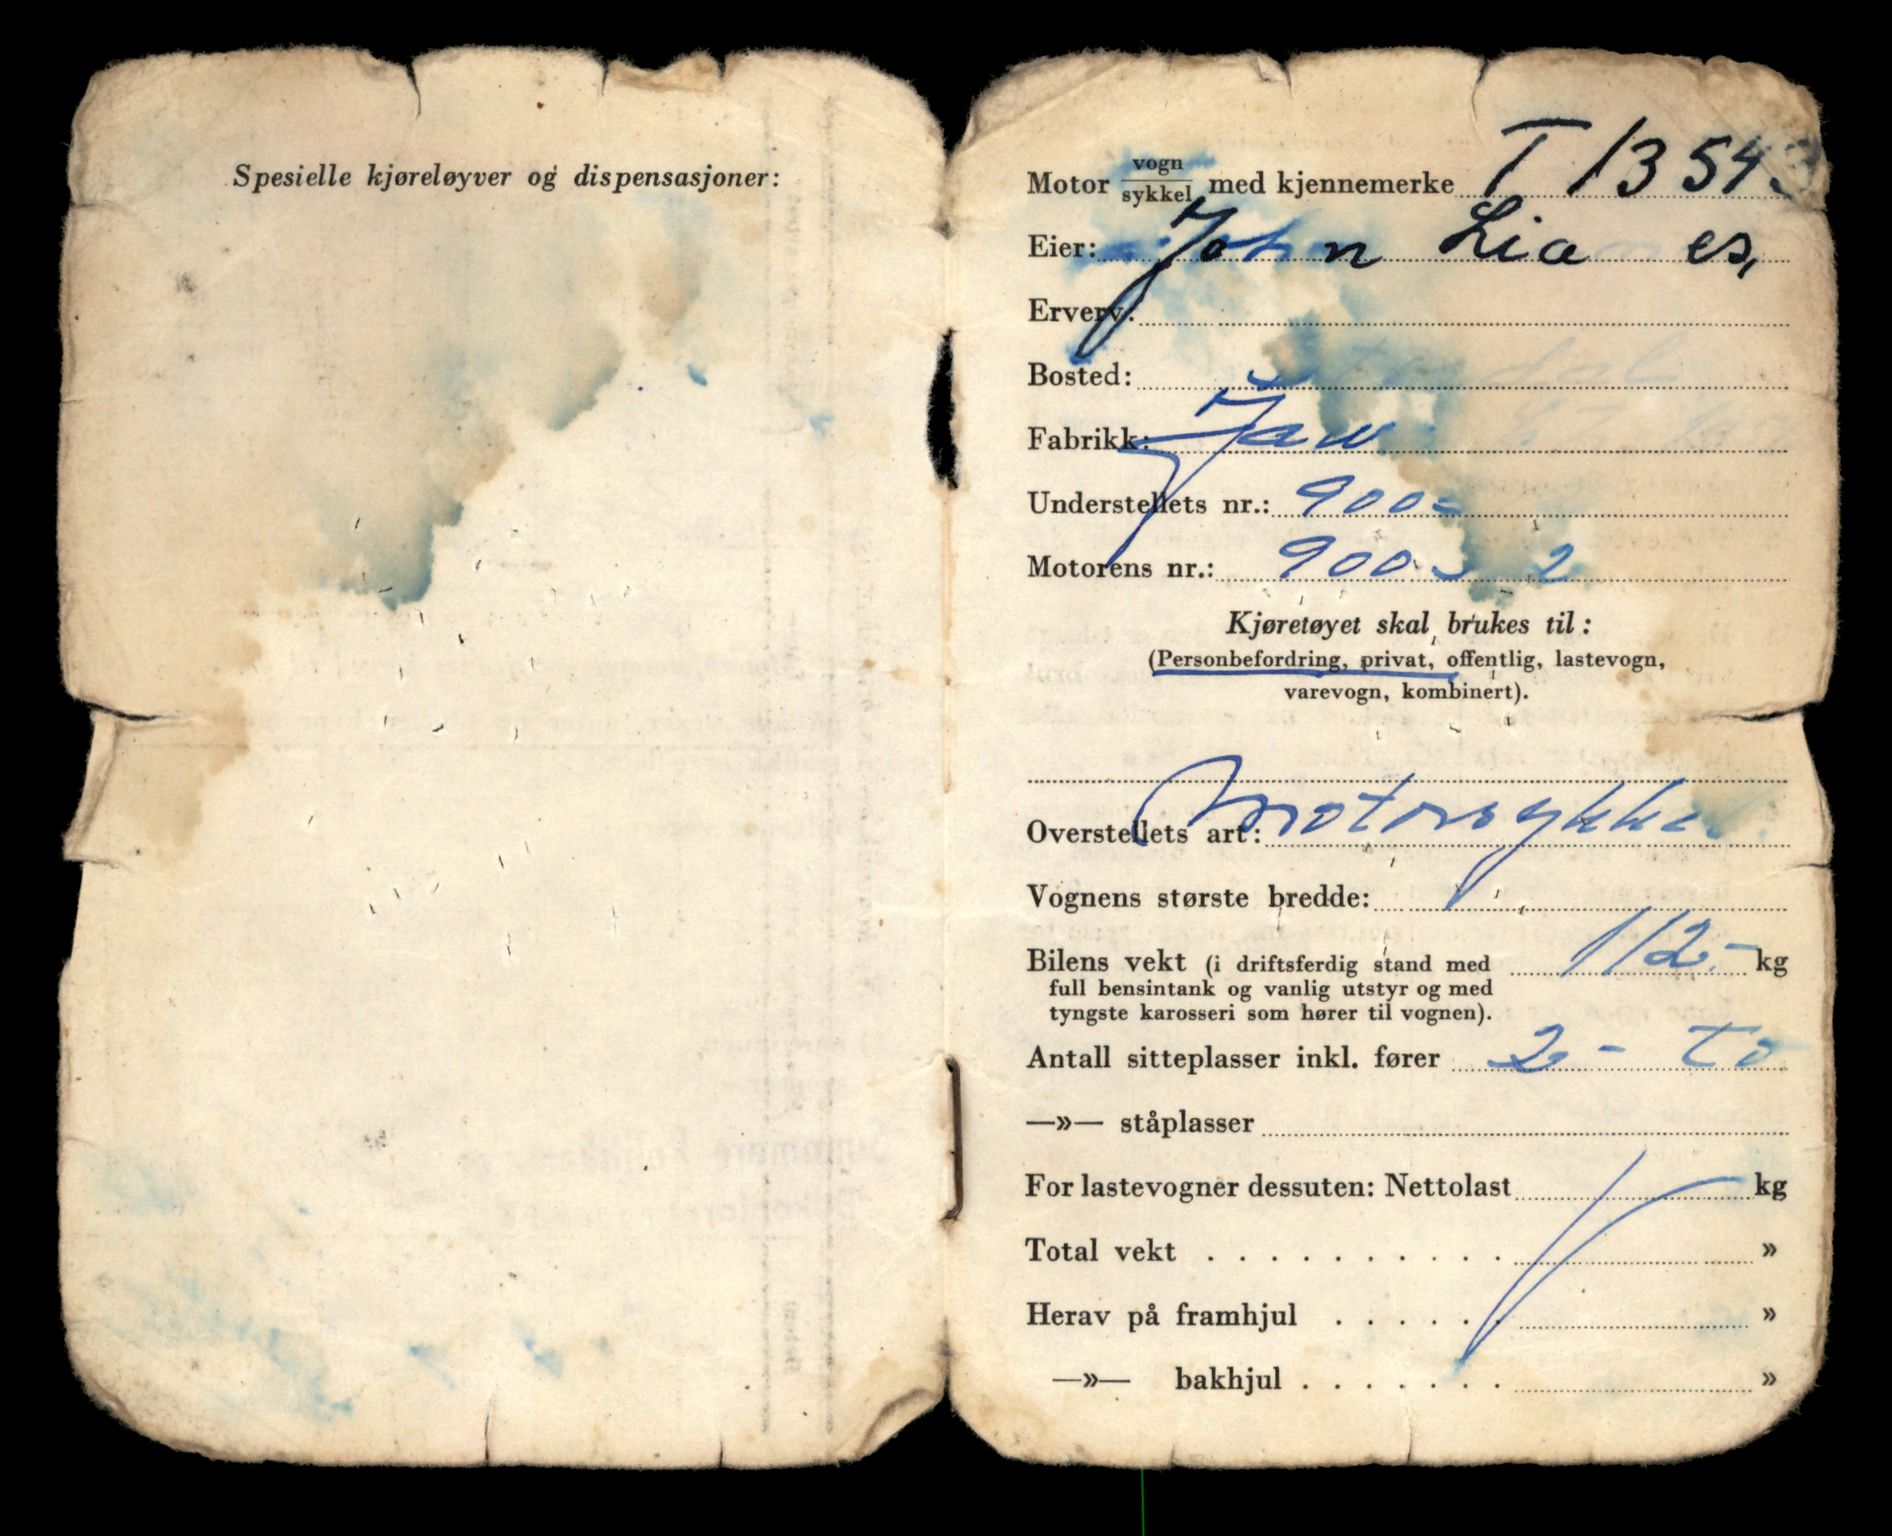 Spesielle kjøreløyver og dispensasjoner:
Motor vogn/sykkel med kjennemerke T 1354
Eier: John Lia es,
Erverv:
Bosted:
Fabrikk: Jaw
Understellets nr.: 900
Motorens nr.: 900 2
Kjøretøyet skal brukes til:
(Personbefordring, privat, offentlig, lastevogn,
varevogn, kombinert).
Overstellets art: Motorsykkel
Vognens største bredde:
Bilens vekt (i driftsferdig stand med 112.- kg
full bensintank og vanlig utstyr og med
tyngste karosseri som hører til vognen).
Antall sitteplasser inkl. fører 2 - to
—»— ståplasser
For lastevogner dessuten: Nettolast kg
Total vekt . . . . . . . . . . »
Herav på framhjul . . . . . . »
—»— bakhjul . . . . . . . »